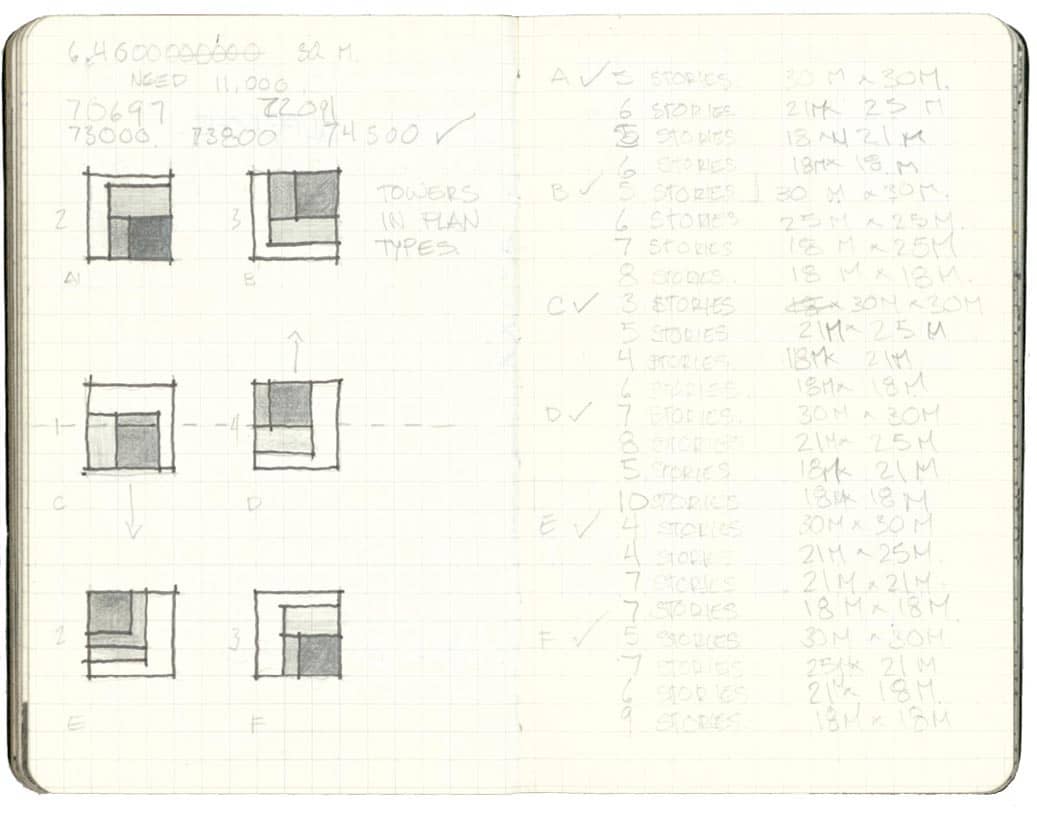 SQ M.
NEED 11,000
70697 72091
73000. 73800 74500 ✓
TOWERS
IN PLAN
TYPES.
2
3
A
B
1
4
C
D
2
3
E
F
A ✓ 5 STORIES 30 M x 30M.
6 STORIES 21M x 25 M
5 STORIES 18 M 21 M
6 STORIES 18M x 18 M
B ✓ 5 STORIES 30 M x 30M.
6 STORIES 25M x 25M.
7 STORIES 18 M x 25M
8 STORIES 18 M x 18M.
C ✓ 3 STORIES 30M x 30M
5 STORIES 21M x 25 M
4 STORIES 18M x 21M
6 STORIES 18M x 18M
D ✓ 7 STORIES 30M x 30M
8 STORIES 21M x 25M
5 STORIES 18M x 21M
10 STORIES 18M x 18M
E ✓ 4 STORIES 30M x 30M
4 STORIES 21M x 25M.
7 STORIES 21M x 21M
7 STORIES 18M x 18M
F ✓ 5 STORIES 30M x 30M
7 STORIES 25M x 21M
6 STORIES 21M x 18M.
9 STORIES 18M x 18M